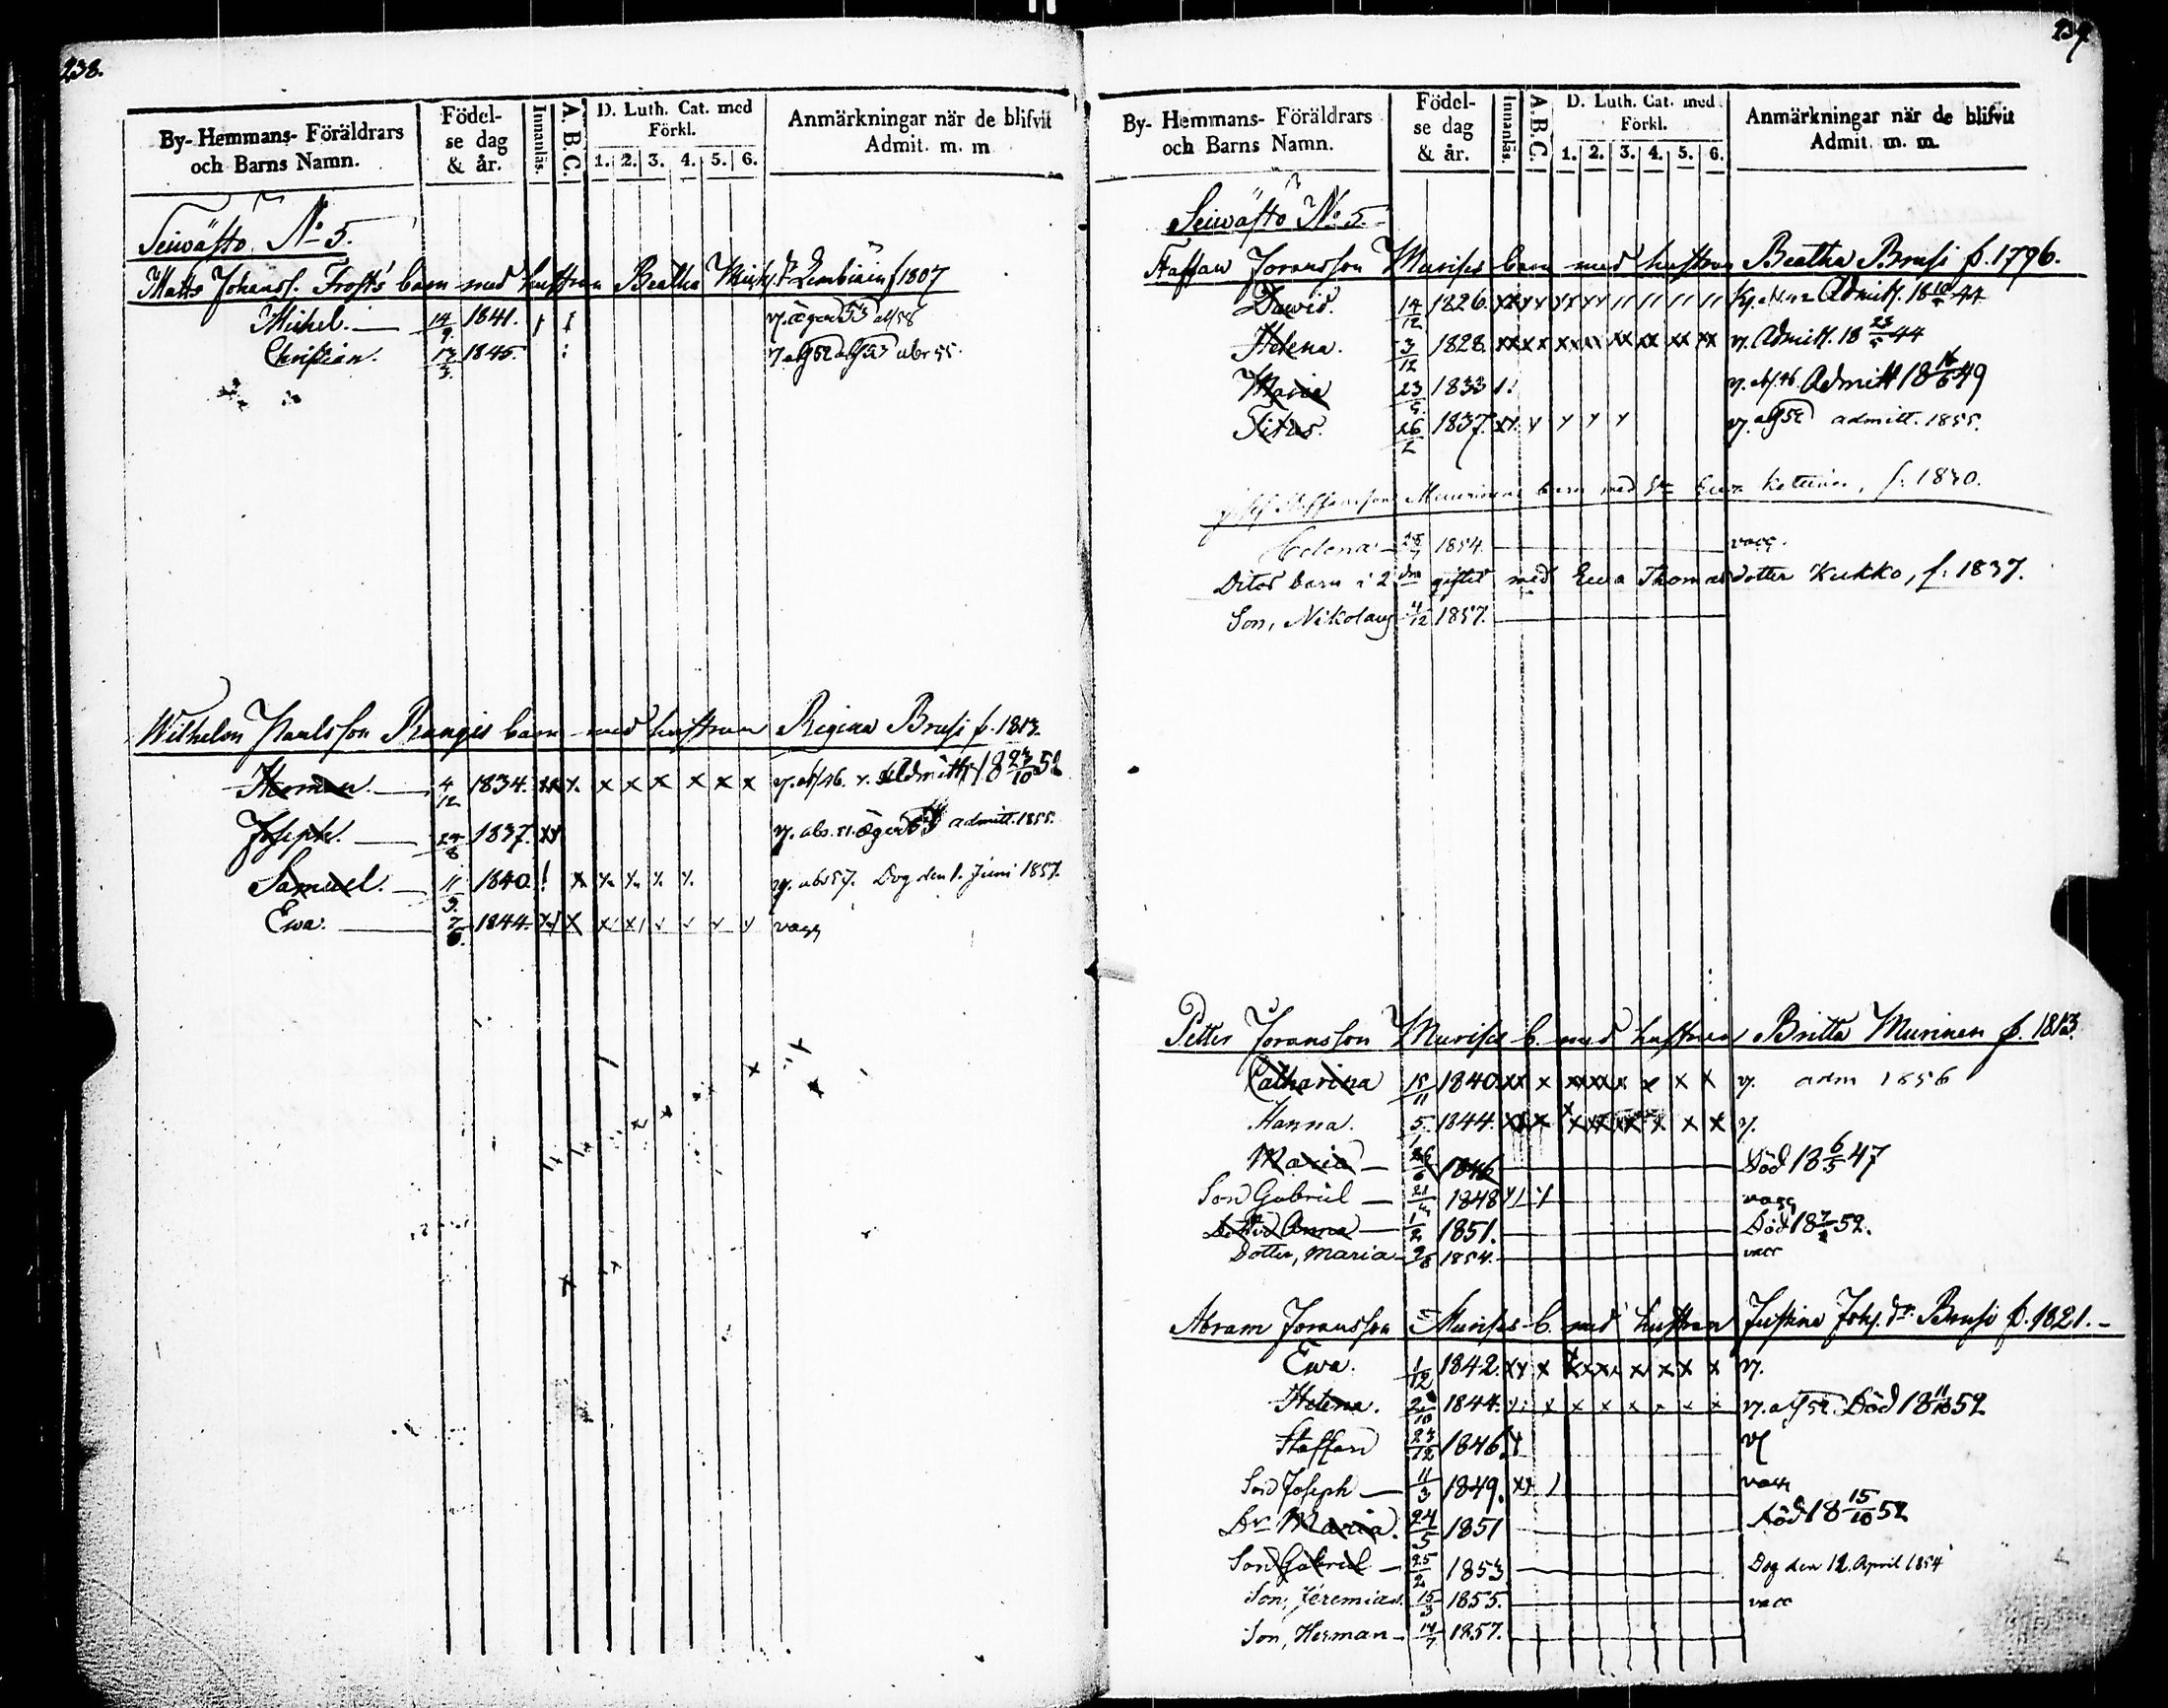 238.
By- Hemmans- Föräldrars och Barns Namn.
Födelse dag & år.
Innanläs.
A. B. C.
D. Luth. Cat. med Förkl.
1. 2. 3. 4. 5. 6.
Anmärkningar när de blifvit Admit. m. m
Seiwästö No 5.
Matts Johanss. Frost's barn med hustrun Beatha Mich. dr f 1807
Michel. 14/9 1841.
Christian. 13/3 1845. abs 55.
Wilhelm Paulsson Prangis barn med hustrun Regina Brusi f. 1813.
Herman. 4/12 1834. x x x x x x Admitt. 18 23/10 52
Joseph. 24/8 1837. v. abs. 51. admitt. 1855.
Samuel. 11/3 1840 v. abs 57. Dog den 1. Juni 1857.
Ewa. 7/6 1844. vacc
239.
By- Hemmans- Föräldrars och Barns Namn.
Födelse dag & år.
Innanläs.
A. B. C.
D. Luth. Cat. med Förkl.
1. 2. 3. 4. 5. 6.
Anmärkningar när de blifvit Admit. m. m.
Seiwästö No 5.
Staffan Joransson Murises barn med hustrun Beatha Brusi f. 1796.
Dawid. 14/12 1826. Admitt. 44
Helena. 3/12 1828. v. Admitt. 18 23/5 44
Maria 23/5 1833 Admitt 18 16/6 49
Titus. 26/2 1837. v. admitt. 1855.
Staffansson Muurinens barn med Ewa f. 1830.
Helena 1854. vacc.
Ditos barn i 2dra giftet med Ewa Thomasdotter Kukko, f. 1837.
Son, Nikolaus 11/12 1857.
Petter Joransson Murises b. med hustrun Britta Murinen f. 1813.
Catharina 15/11 1840. v. adm 1856
Hanna. 5/1 1844. v.
Maria 26/6 1846 Död 18 6/5 47
Son Gabriel 1848 vacc
Dotter Anna 1/2 1851. Död 52.
Dotter, Maria 1854. vacc
Abram Joransson Murises b. med hustrun Justina Johs. dr Brusi f. 1821.
Ewa. 1/12 1842. v.
Helena. 1844. v. Död 18 11/10 52
Staffan 23/12 1846. v
Son Joseph 11/3 1849. vacc
Dr Maria. 24/5 1851 Död 18 15/10 52
Son Gabriel 25/2 1853 Dog den 12. April 1854
Son, Jeremias. 15/3 1855. vacc
Son, Herman 14/7 1857.